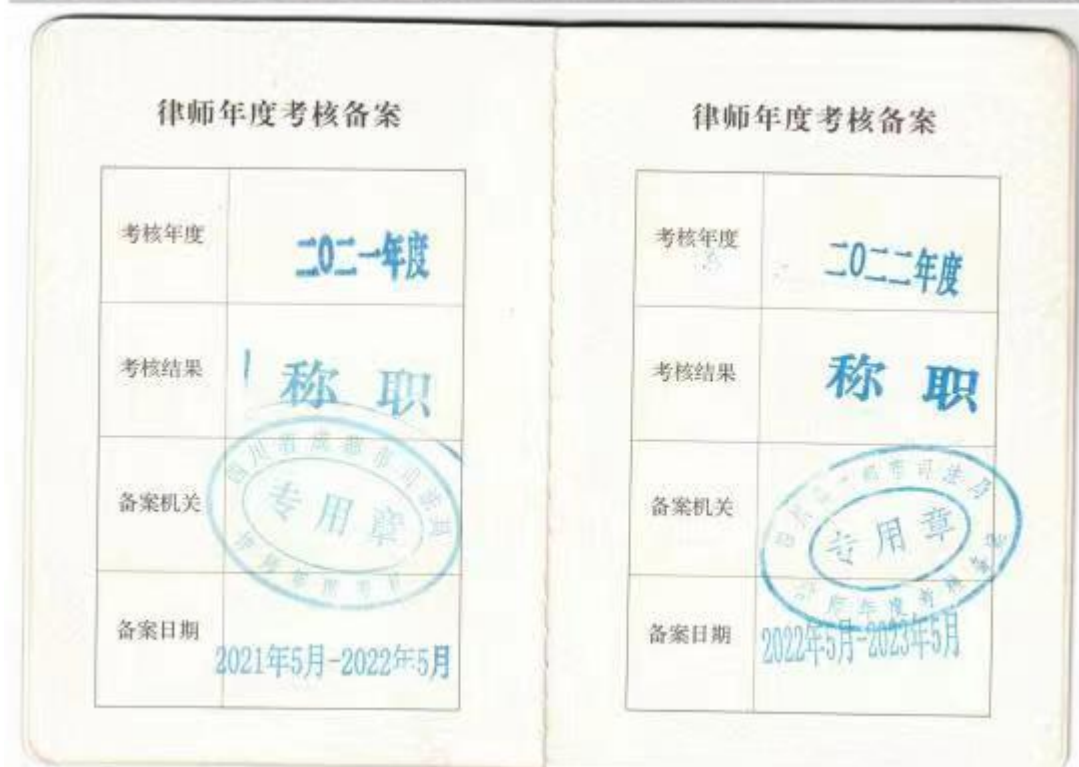 律师年度考核备案
考核年度
二0二一年度
考核结果
称职
备案机关
四川省成都市司法局
专用章
备案日期
2021年5月-2022年5月
律师年度考核备案
考核年度
二0二二年度
考核结果
称职
备案机关
都市司法局
专用章
律师年度考核备案
备案日期
2022年5月-2023年5月